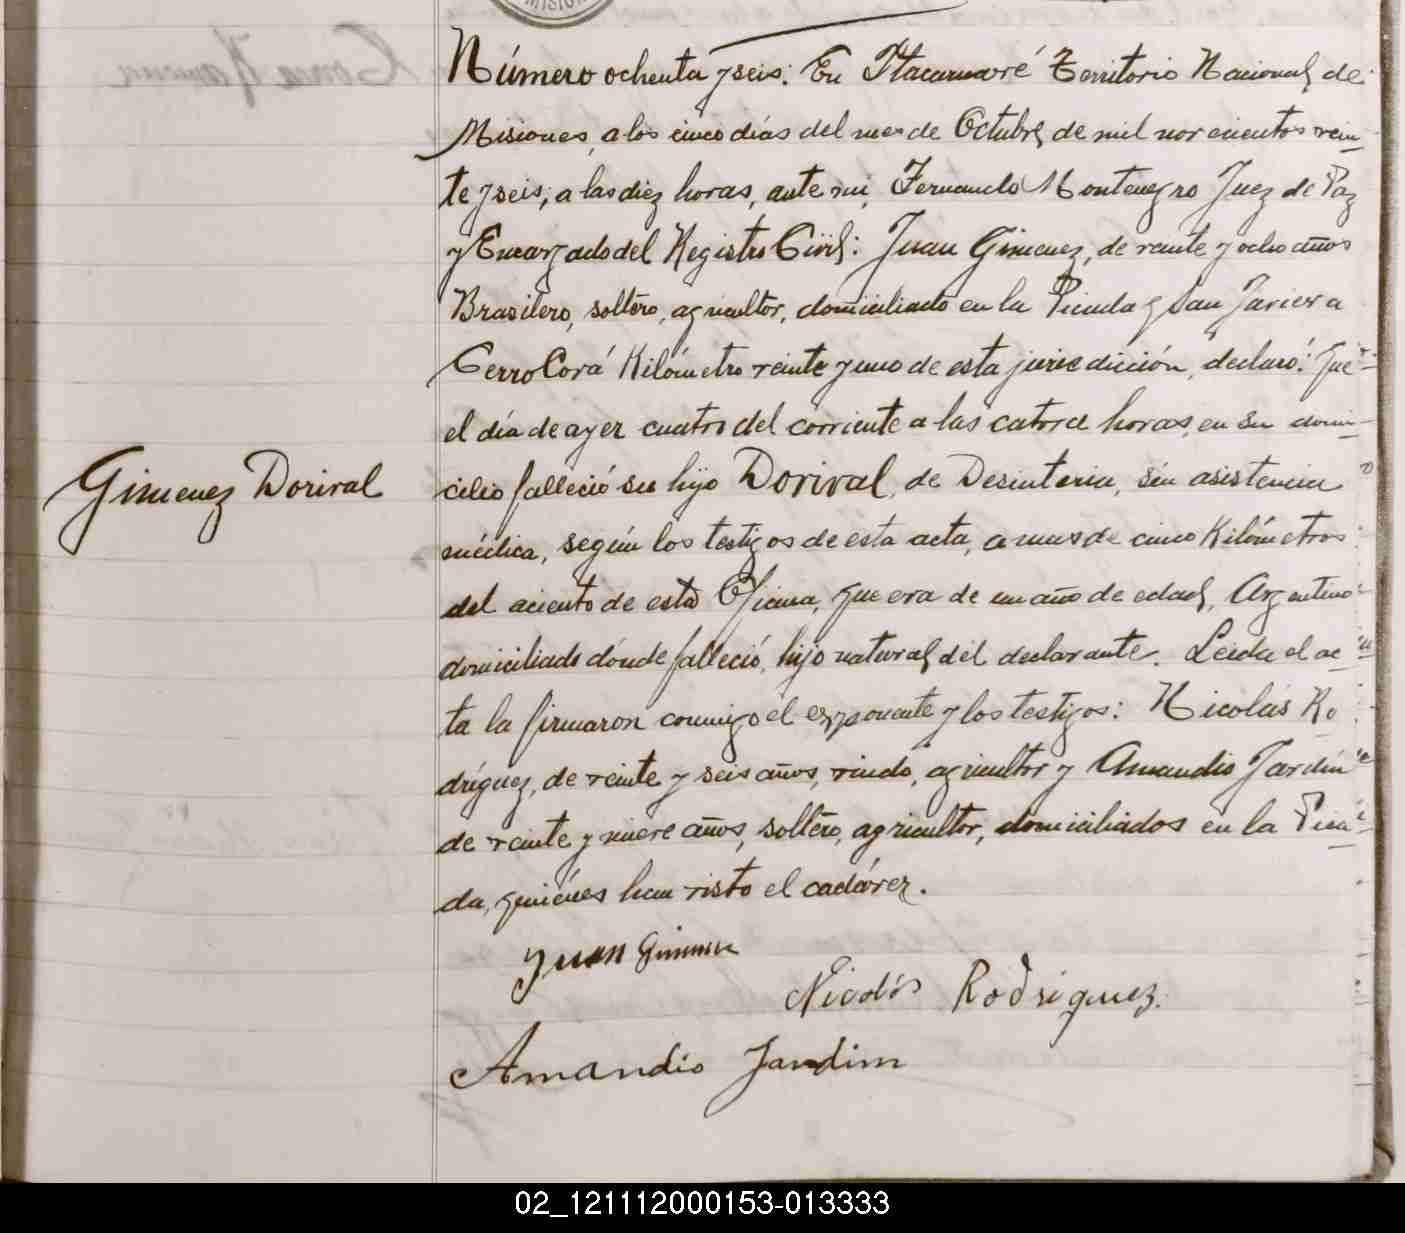 MISION
Número ochenta y seis: En Itacaruaré Territorio Nacional de
Misiones, a los cinco días del mes de Octubre de mil novecientos vein-
te y seis, a las diez horas, ante mi, Fernando Montenegro Juez de Paz
y Encargado del Registro Civil: Juan Gimenez, de veinte y ocho años
Brasilero, soltero, agricultor, domiciliado en la Picada San Javier a
Cerro Corá Kilómetro veinte y uno de esta jurisdicción, declaró: Que
el día de ayer cuatro del corriente a las catorce horas, en su domi-
Gimenez Dorival
cilio falleció su hijo Dorival, de Desinteria, sin asistencia
médica, según los testigos de esta acta, a mas de cinco Kilómetros
del aciento de esta Oficina, que era de un año de edad, Argentino
domiciliado dónde falleció, hijo natural del declarante. Leida el ac-
ta la firmaron conmigo el exponente y los testigos: Nicolás Ro-
dríguez, de veinte y seis años, viudo, agricultor y Amandio Jardín
de veinte y nueve años, soltero, agricultor, domiciliados en la Pica-
da, quiénes han visto el cadáver.
Juan Gimenez
Nicolás Rodriguez.
Amandio Jardim
02_121112000153-013333